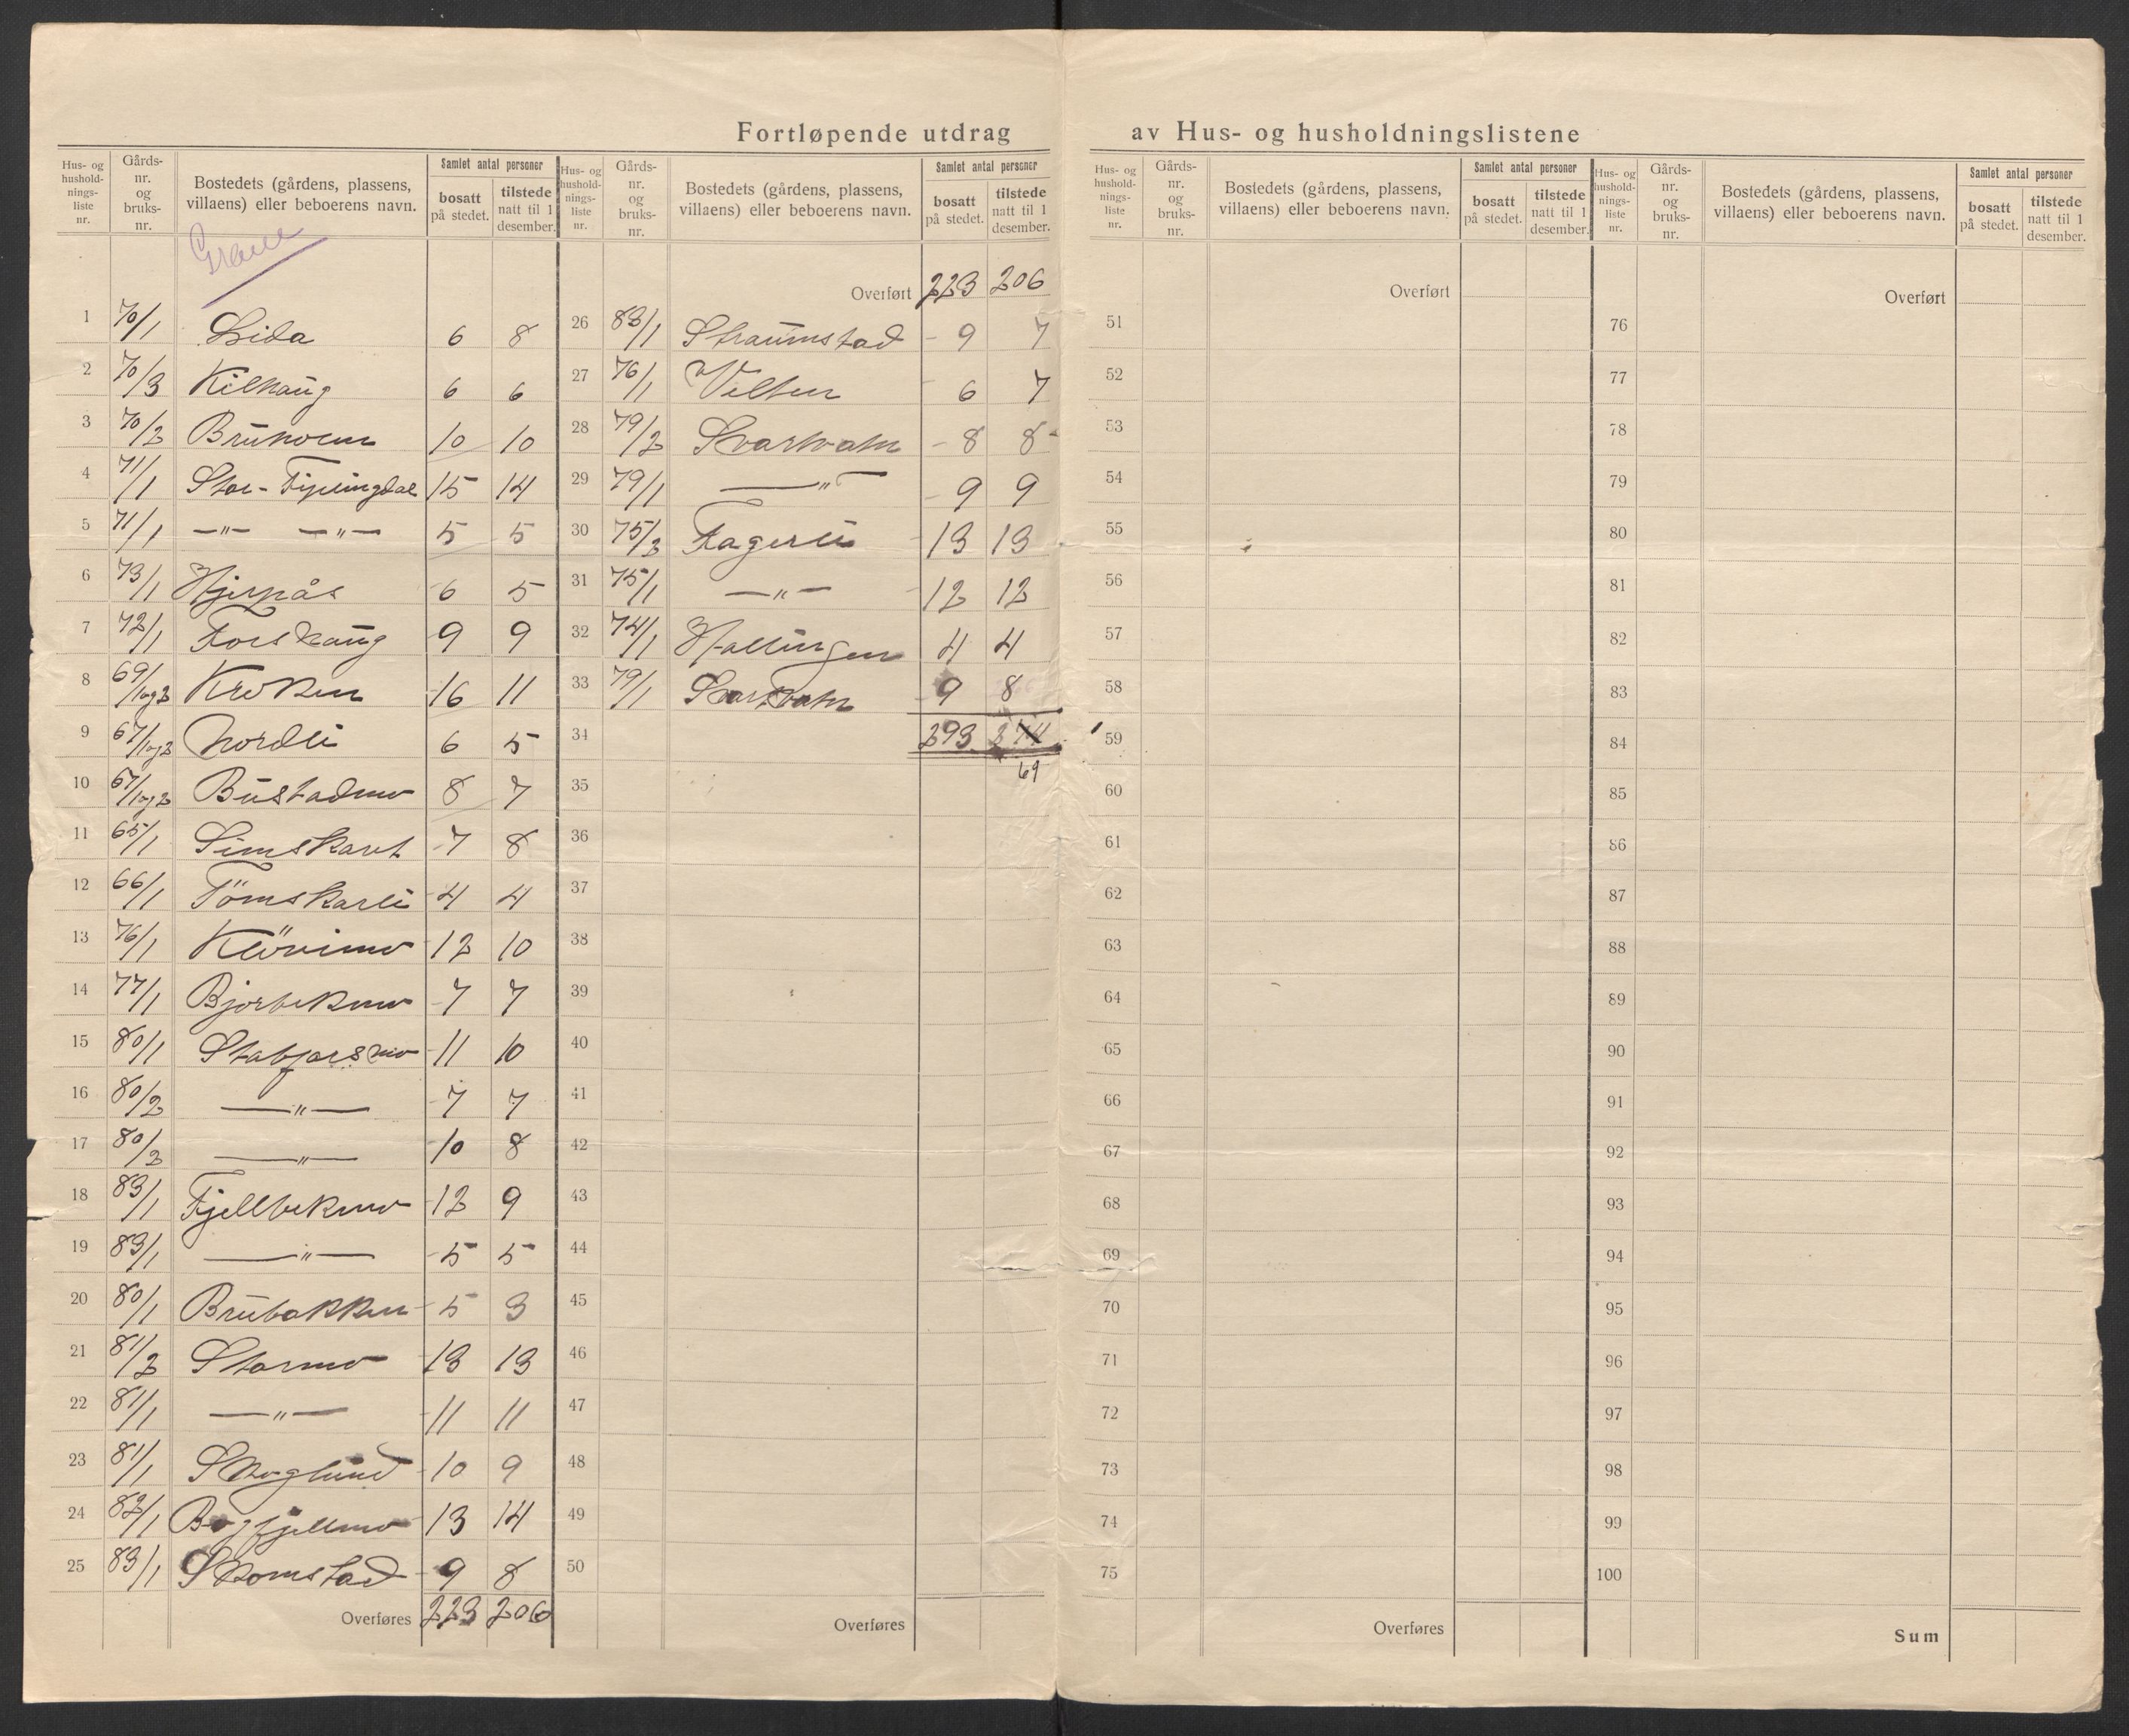 Fortløpende utdrag av Hus- og husholdningslistene
Hus- og hushold- nings- liste nr. Gårds- nr. og bruks- nr. Bostedets (gårdens, plassens, villaens) eller beboerens navn. Samlet antal personer bosatt på stedet. tilstede natt til 1 desember.
Grane
1 70/1 Lida 6 8
2 70/3 Kilhaug 6 6
3 70/2 10 10
4 71/1 Stor-Fiplingdal 15 14
5 71/1 —"— —"— 5 5
6 73/1 Hjernås 6 5
7 72/1 Forshaug 9 9
8 69/1og2 Kroken 16 11
9 67/1og2 Nordli 6 5
10 67/1og2 Bustadmo 8 7
11 65/1 Simskaret 7 8
12 66/1 Tömskarli 4 4
13 76/1 Klövimo 12 10
14 77/1 Bjorbekmo 7 7
15 80/1 Stabforsmo 11 10
16 80/2 —"— 7 7
17 80/2 —"— 10 8
18 83/1 Fjellbekmo 12 9
19 83/1 —"— 5 5
20 80/1 Brubakken 5 3
21 81/2 Stormo 13 13
22 81/1 —"— 11 11
23 81/1 Skoglund 10 9
24 82/1 Bogfjellmo 13 14
25 83/1 9 8
Overføres 223 206
Hus- og hushold- nings- liste nr. Gårds- nr. og bruks- nr. Bostedets (gårdens, plassens, villaens) eller beboerens navn. Samlet antal personer bosatt på stedet. tilstede natt til 1 desember.
Overført 223 206
26 83/1 Straumstad 9 7
27 76/1 6 7
28 79/2 Svartvatn 8 8
29 79/1 —"— 9 9
30 75/2 Fagerli 13 13
31 75/1 —"— 12 12
32 74/1 Hallingen 4 4
33 79/1 Svartvatn 9 8
34 293 274
69
35
36
37
38
39
40
41
42
43
44
45
46
47
48
49
50
Overføres
Hus- og hushold- nings- liste nr. Gårds- nr. og bruks- nr. Bostedets (gårdens, plassens, villaens) eller beboerens navn. Samlet antal personer bosatt på stedet. tilstede natt til 1 desember.
Overført
51
52
53
54
55
56
57
58
59
60
61
62
63
64
65
66
67
68
69
70
71
72
73
74
75
Overføres
Hus- og hushold- nings- liste nr. Gårds- nr. og bruks- nr. Bostedets (gårdens, plassens, villaens) eller beboerens navn. Samlet antal personer bosatt på stedet. tilstede natt til 1 desember.
Overført
76
77
78
79
80
81
82
83
84
85
86
87
88
89
90
91
92
93
94
95
96
97
98
99
100
Sum